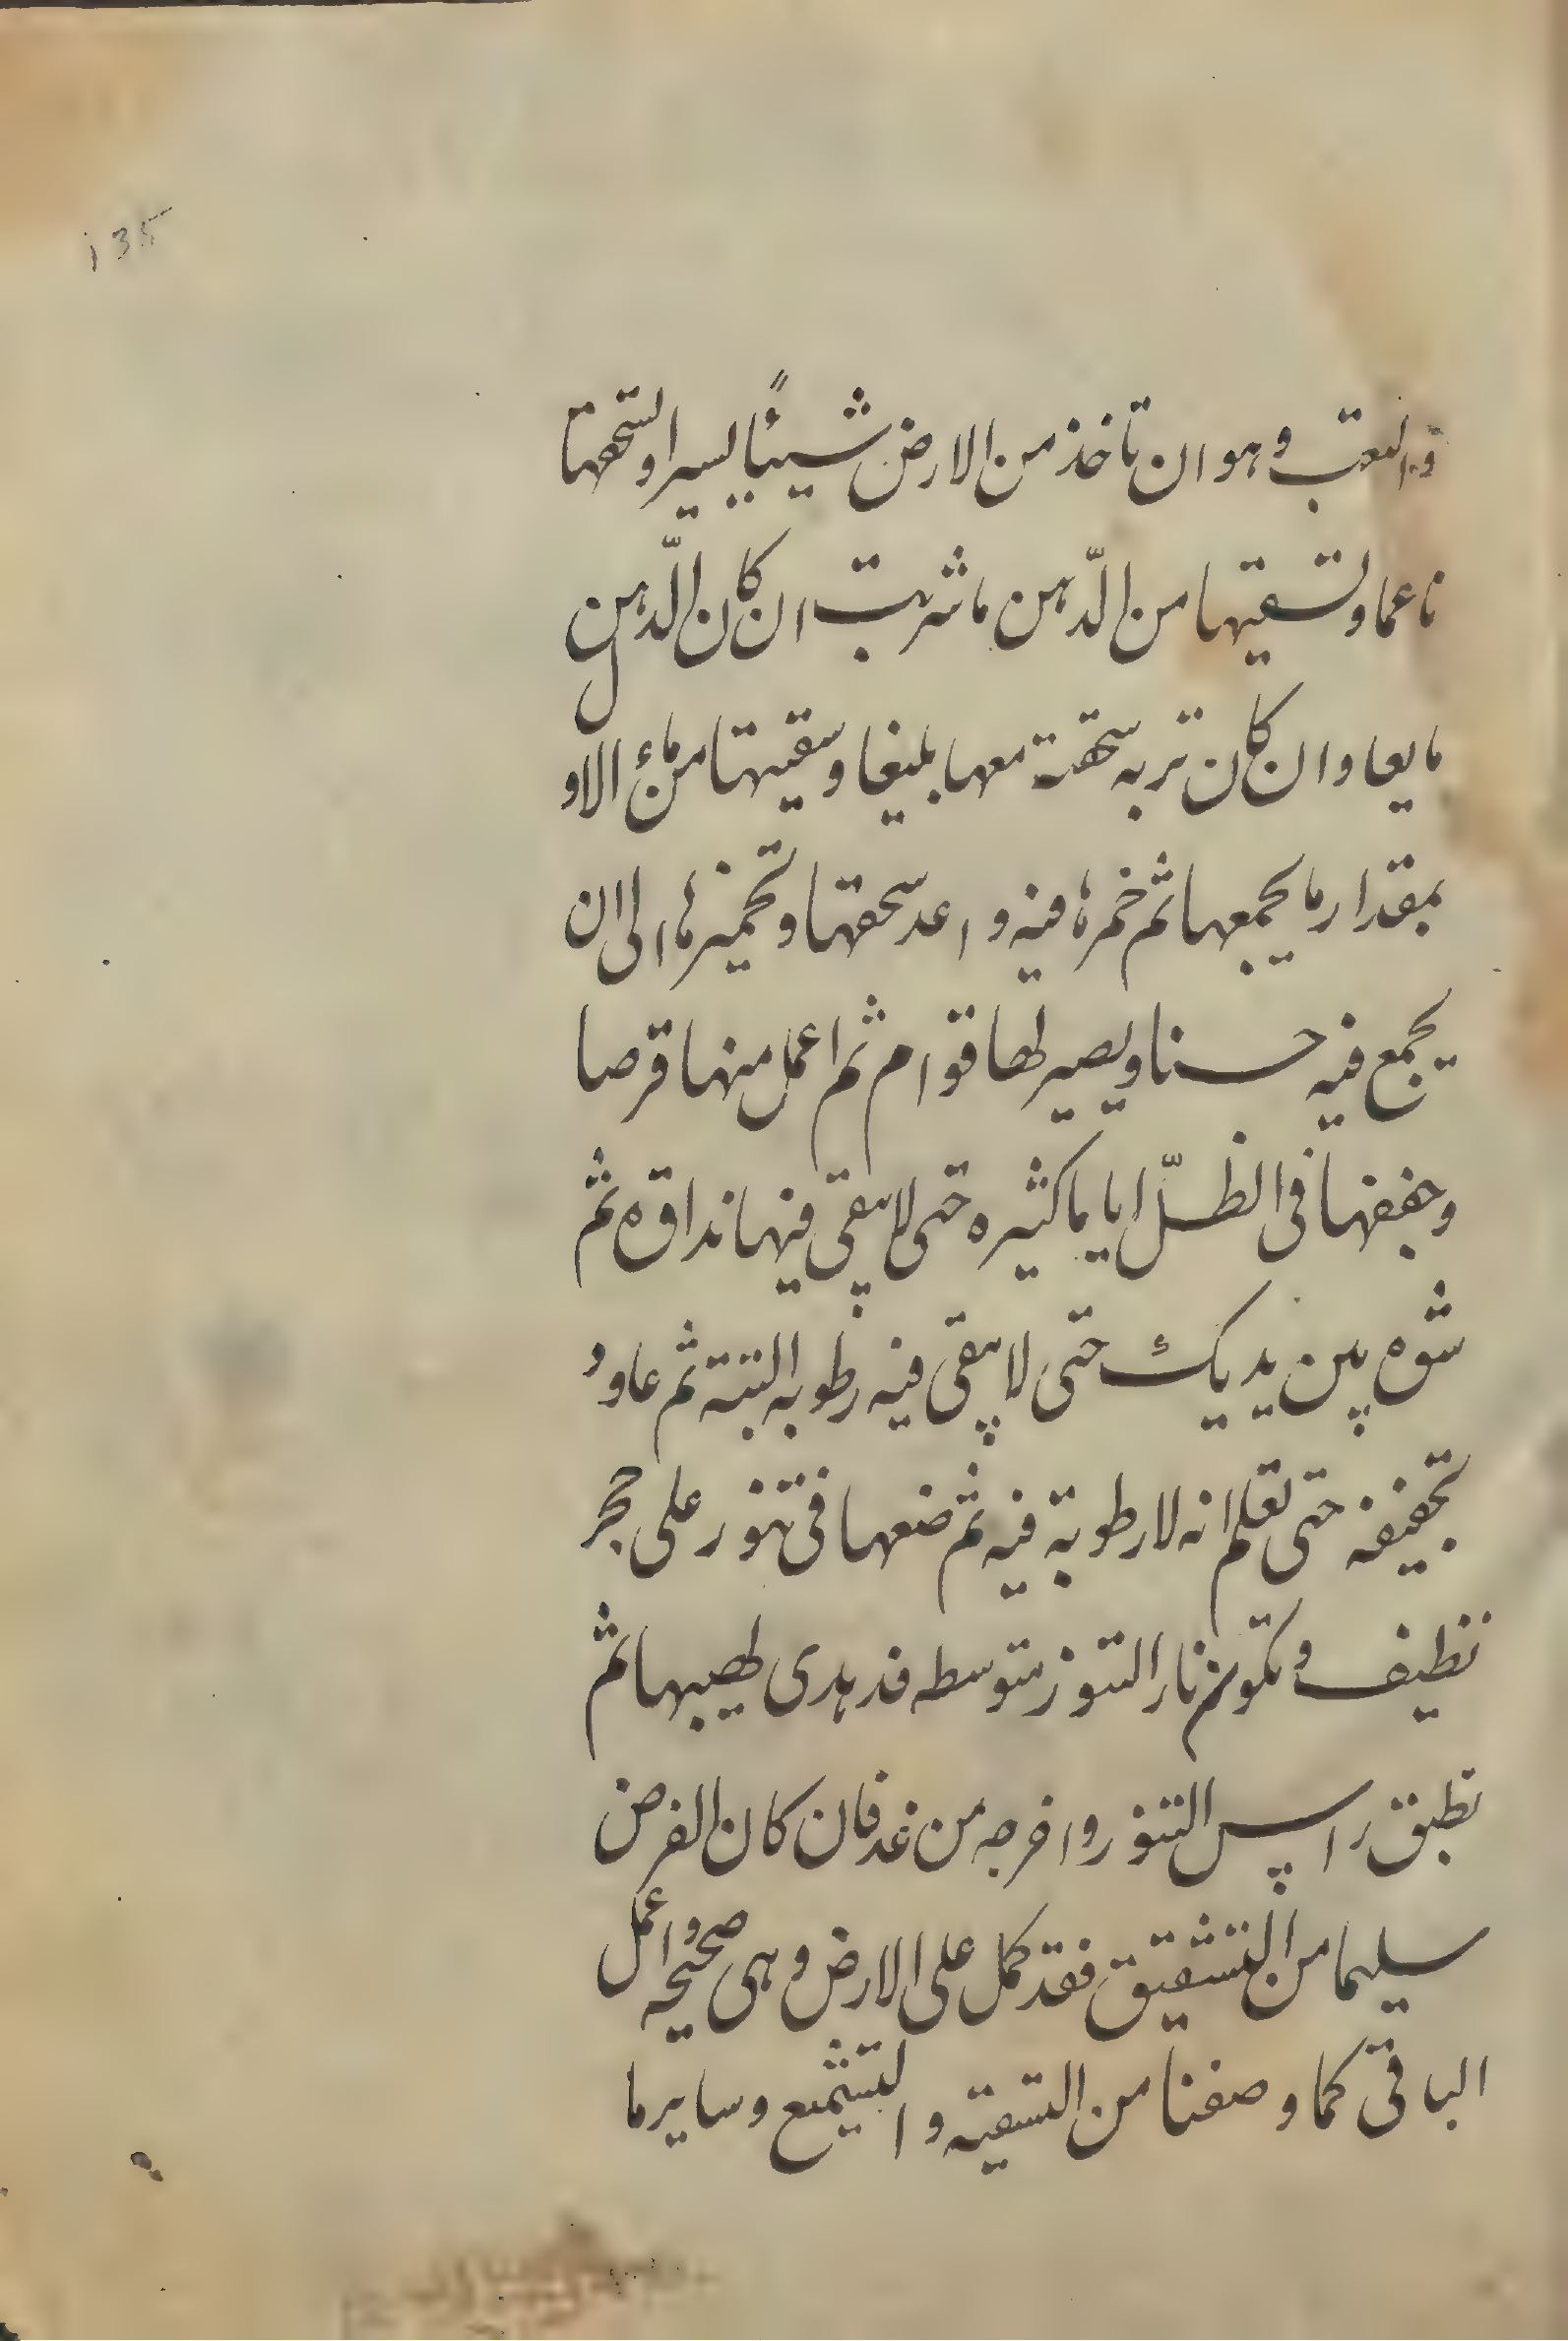 135
والتعب وهو ان تاخذ من الارض شيئًا يسيرا وتسحقها
ناعما وتسقيها من الدّهن ما شربت ان كان الدّهن
مايعا وان كان تربه سحقته معها بليغا وسقيتها من مائ الاول
بمقدار ما يجمعها ثم خمرها فيه واعد سحقها وتخميرها الى ان
يجمع فيه حسنا ويصير لها قوام ثم اعمل منها قرصا
وجففها فى الظلّ اياما كثيره حتى لا يبقى فيها نداوة ثم
شوه بين يديك حتى لا يبقى فيه رطوبه البتة ثم عاود
تجفيفه حتى تعلم انه لا رطوبة فيه ثم ضعها فى تنور على حجر
نظيف وتكون نار التنور متوسطه قد هدى لهيبها ثم
تطبق راس التنور واخرجه من غد فان كان القرص
سليما من التشقيق فقد كمل على الارض وهى صحيحه واعمل
الباقى كما وصفنا من التسقيه والتشميع وساير ما